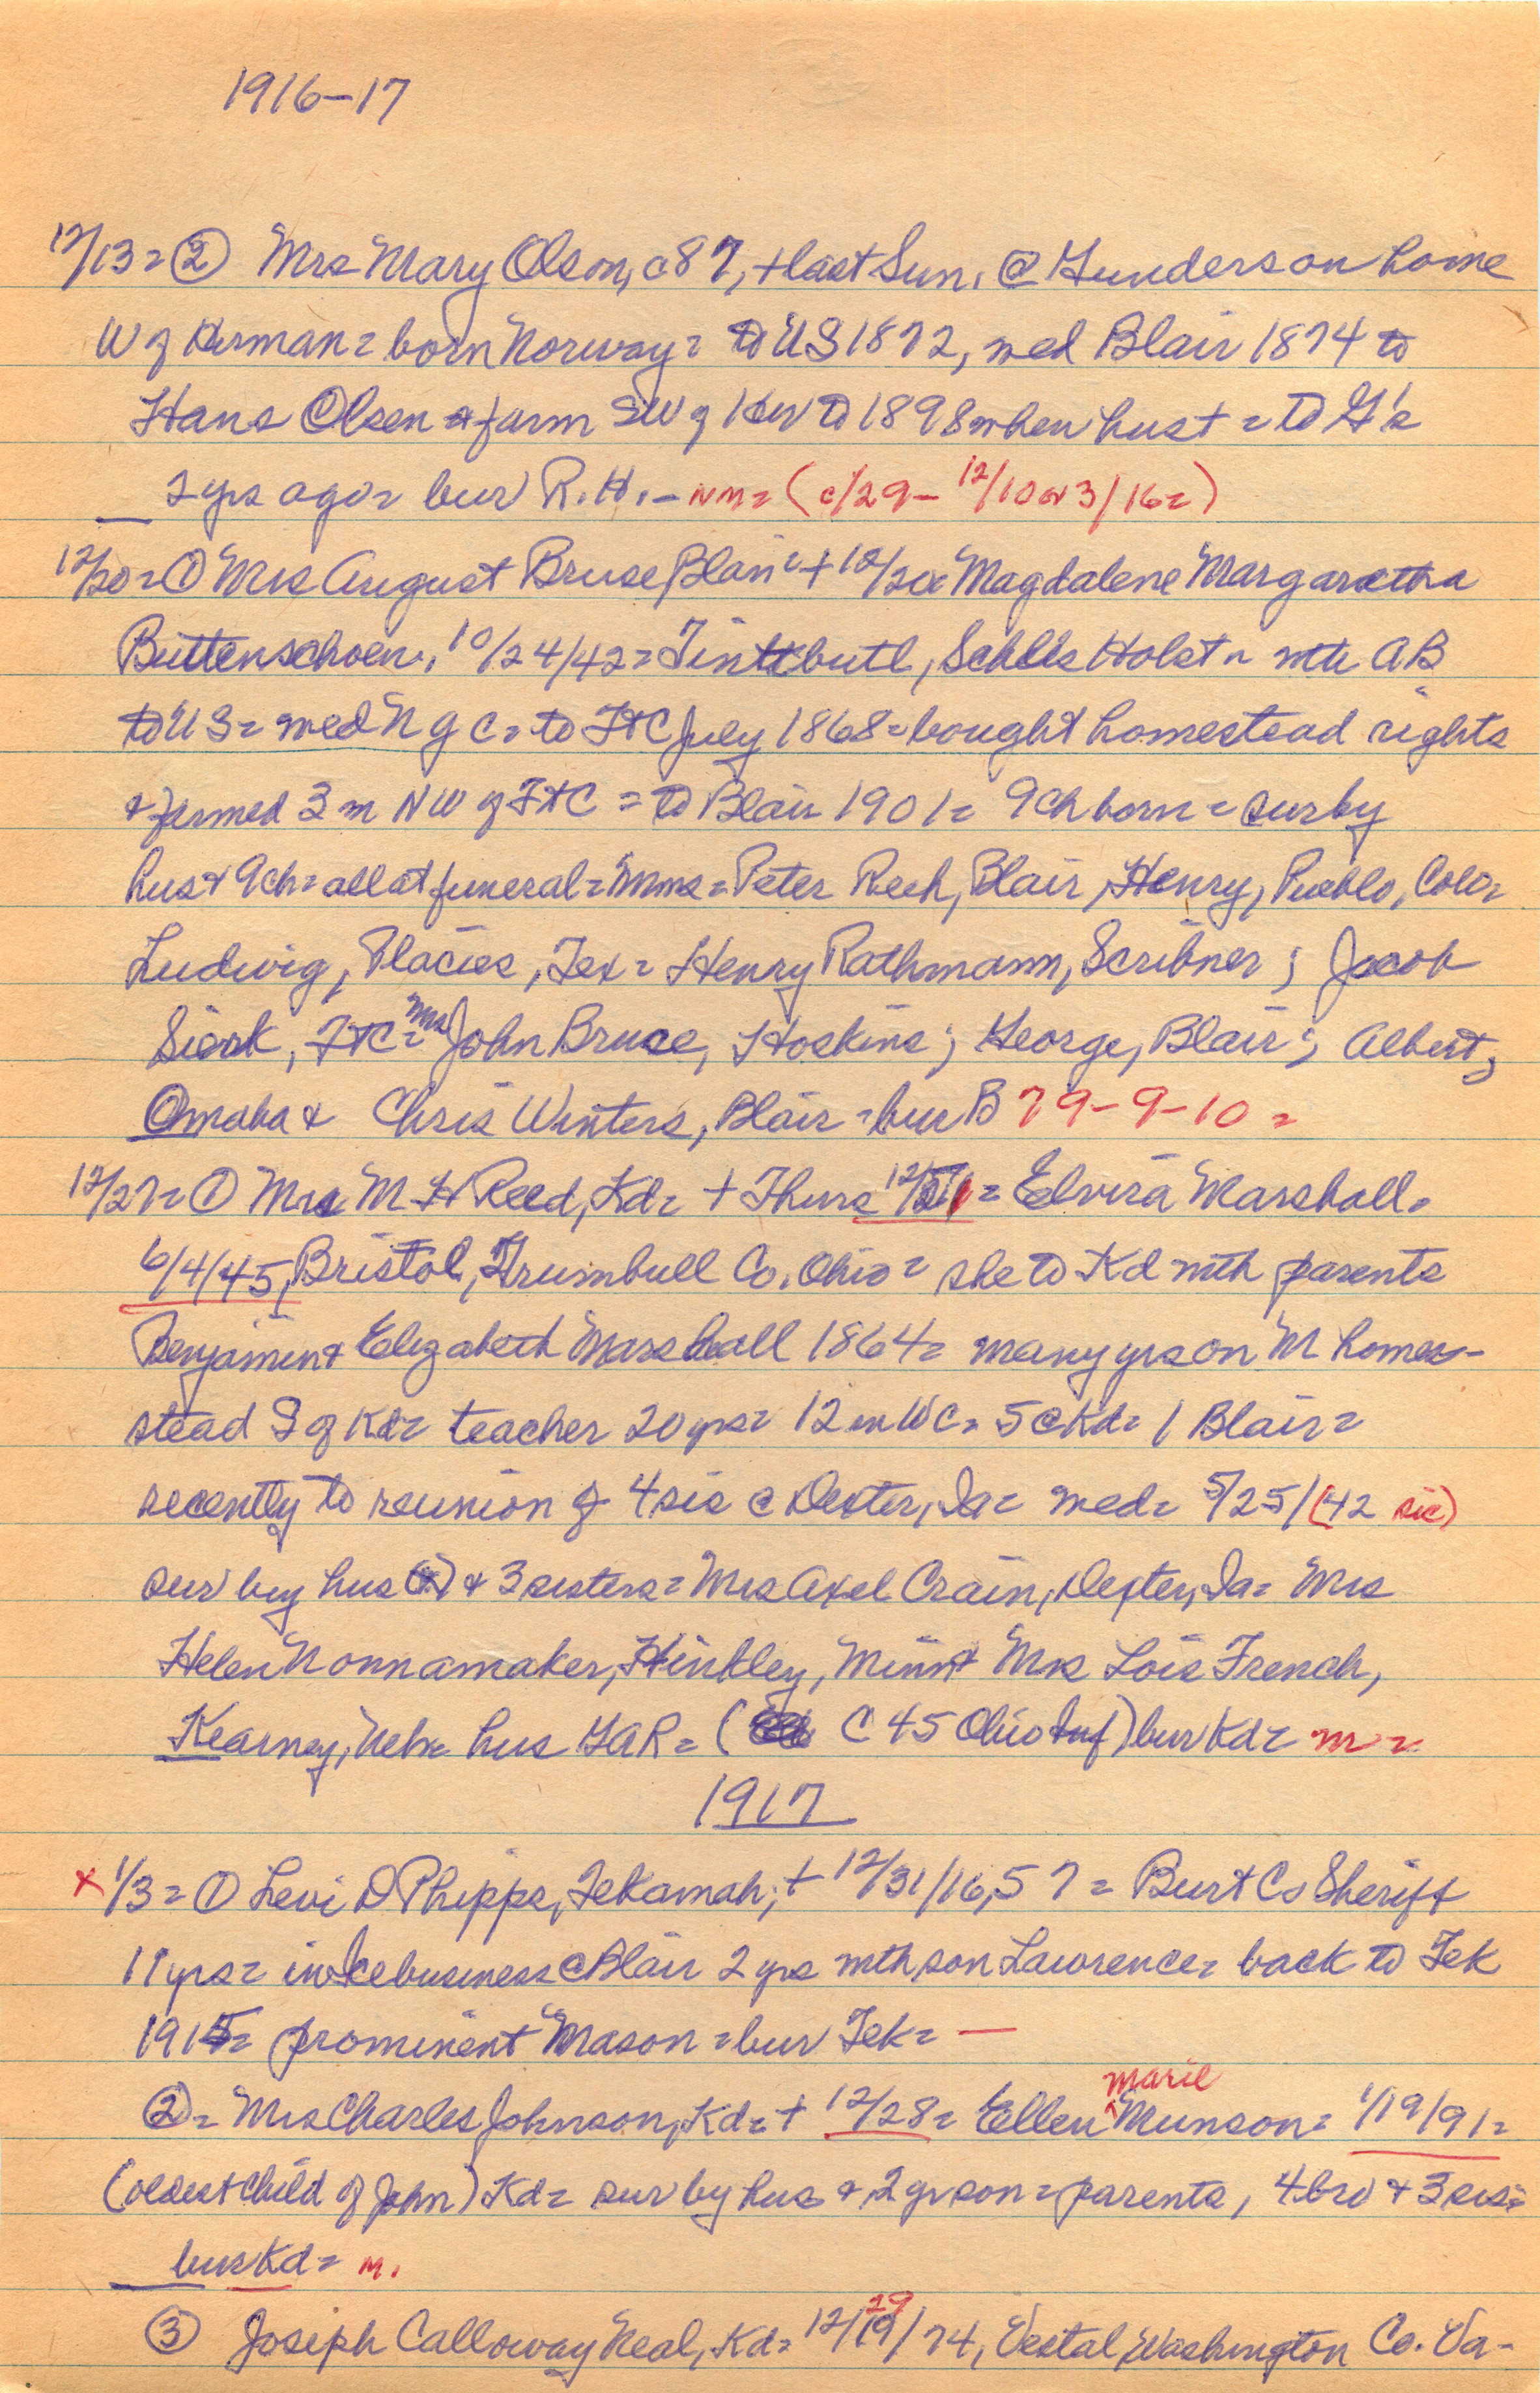 1916-17
12/13 = ② Mrs Mary Olson, c87, + last Sun. @ Gunderson home
W of Herman = born Norway = to US 1872, wed Blair 1874 to
Hans Olsen = farm SW of Her to 1898 when hus + = to G's
2 yrs ago = bur R.H. - NM = (c/29 - 12/10 or 3/16 =)
12/20 = ① Mrs August Bruse, Blair = + 12/ Magdalene Margaretha
Buttenschoen, 10/24/42 = , Schles Holst = with AB
to US = wed N Y C = to FtC July 1868 = bought homestead rights
& farmed 3 m NW of FtC = to Blair 1901 = 9 ch born = sur by
hus & 9 ch = all at funeral = Mmes = Peter Rech, Blair, Henry, Pueblo, Colo =
Ludwig, Placios, Tex = Henry Rathmann, Scribner; Jacob
Sierk, FtC = Mrs John Bruse, Hoskins; George, Blair; Albert,
Omaha & Chris Winters, Blair = bur B 79-9-10 =
12/27 = ① Mrs M H Reed, Kd = + Thurs 12/21 = Elvira Marshall.
6/4/45, Bristol, Trumbull Co. Ohio = she to Kd with parents
Benjamin & Elizabeth Marshall 1864 = many yrs on M home-
stead S of Kd = teacher 20 yrs = 12 in WC = 5 @ Kd = 1 Blair =
recently to reunion of 4 sis @ Dexter, Ia = wed = 5/25/(42 sic)
sur by hus & 3 sisters = Mrs Axel Crain, Dexter, Ia = Mrs
Helen Nonnamaker, Hinkley, Minn & Mrs Lois French,
Kearney, Neb = hus GAR = ( C 45 Ohio Inf) bur Kd = m =
1917
x 1/3 = ① Levi D Phipps, Tekamah, + 12/31/16, 57 = Burt Co Sheriff
11 yrs = in Ice business @ Blair 2 yrs with son Lawrence = back to Tek
1915 = prominent Mason = bur Tek = —
② = Mrs Charles Johnson, Kd = + 12/28 = Ellen ^Marie Munson = 1/19/91 =
(oldest child of John) Kd = sur by hus & 2 yr son = parents, 4 bro & 3 sis =
bur Kd = m.
③ Joseph Calloway Neal, Kd = 12/29/74, Vestal, Washington Co. Va -